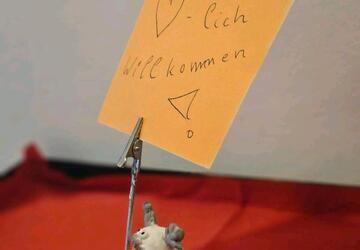 ♡-lich
Willkommen
!